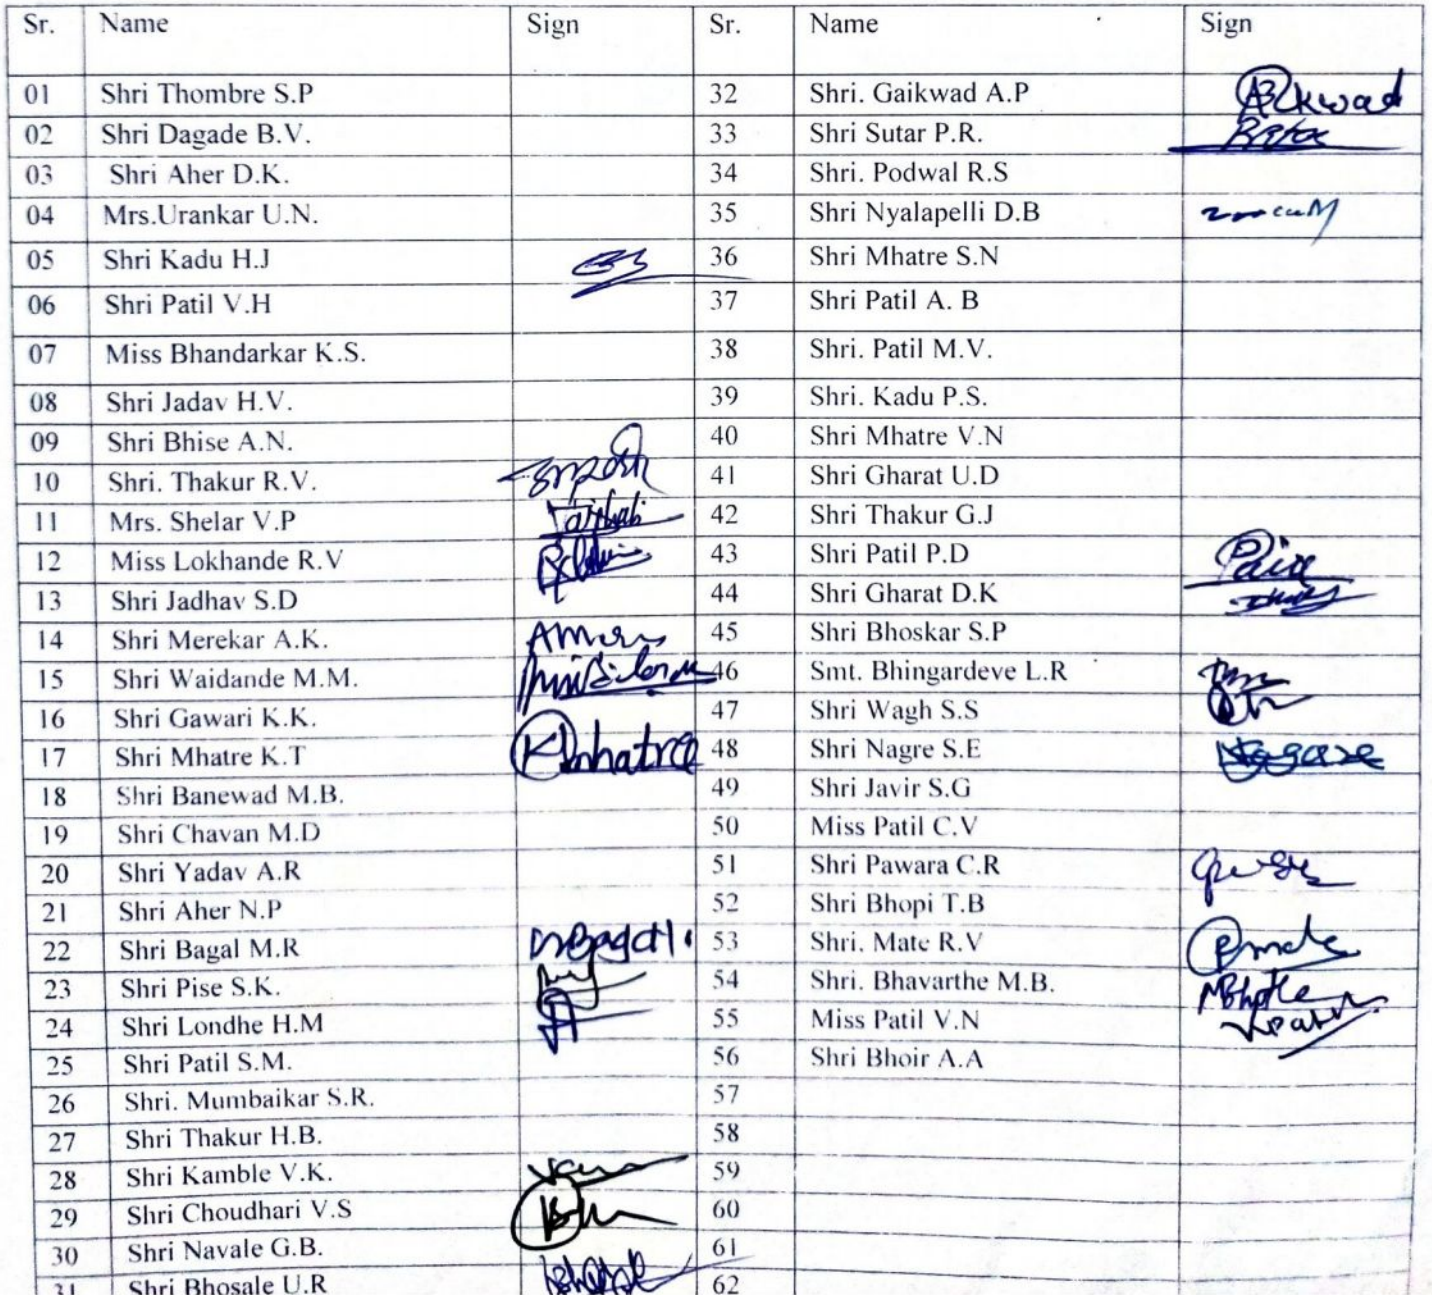 Sr. Name Sign Sr. Name Sign
01 Shri Thombre S.P 32 Shri. Gaikwad A.P
02 Shri Dagade B.V. 33 Shri Sutar P.R.
03 Shri Aher D.K. 34 Shri. Podwal R.S
04 Mrs.Urankar U.N. 35 Shri Nyalapelli D.B
05 Shri Kadu H.J 36 Shri Mhatre S.N
06 Shri Patil V.H 37 Shri Patil A. B
07 Miss Bhandarkar K.S. 38 Shri. Patil M.V.
08 Shri Jadav H.V. 39 Shri. Kadu P.S.
09 Shri Bhise A.N. 40 Shri Mhatre V.N
10 Shri. Thakur R.V. 41 Shri Gharat U.D
11 Mrs. Shelar V.P 42 Shri Thakur G.J
12 Miss Lokhande R.V 43 Shri Patil P.D
13 Shri Jadhav S.D 44 Shri Gharat D.K
14 Shri Merekar A.K. 45 Shri Bhoskar S.P
15 Shri Waidande M.M. 46 Smt. Bhingardeve L.R
16 Shri Gawari K.K. 47 Shri Wagh S.S
17 Shri Mhatre K.T 48 Shri Nagre S.E
18 Shri Banewad M.B. 49 Shri Javir S.G
19 Shri Chavan M.D 50 Miss Patil C.V
20 Shri Yadav A.R 51 Shri Pawara C.R
21 Shri Aher N.P 52 Shri Bhopi T.B
22 Shri Bagal M.R 53 Shri. Mate R.V
23 Shri Pise S.K. 54 Shri. Bhavarthe M.B.
24 Shri Londhe H.M 55 Miss Patil V.N
25 Shri Patil S.M. 56 Shri Bhoir A.A
26 Shri. Mumbaikar S.R. 57
27 Shri Thakur H.B. 58
28 Shri Kamble V.K. 59
29 Shri Choudhari V.S 60
30 Shri Navale G.B. 61
31 Shri Bhosale U.R 62